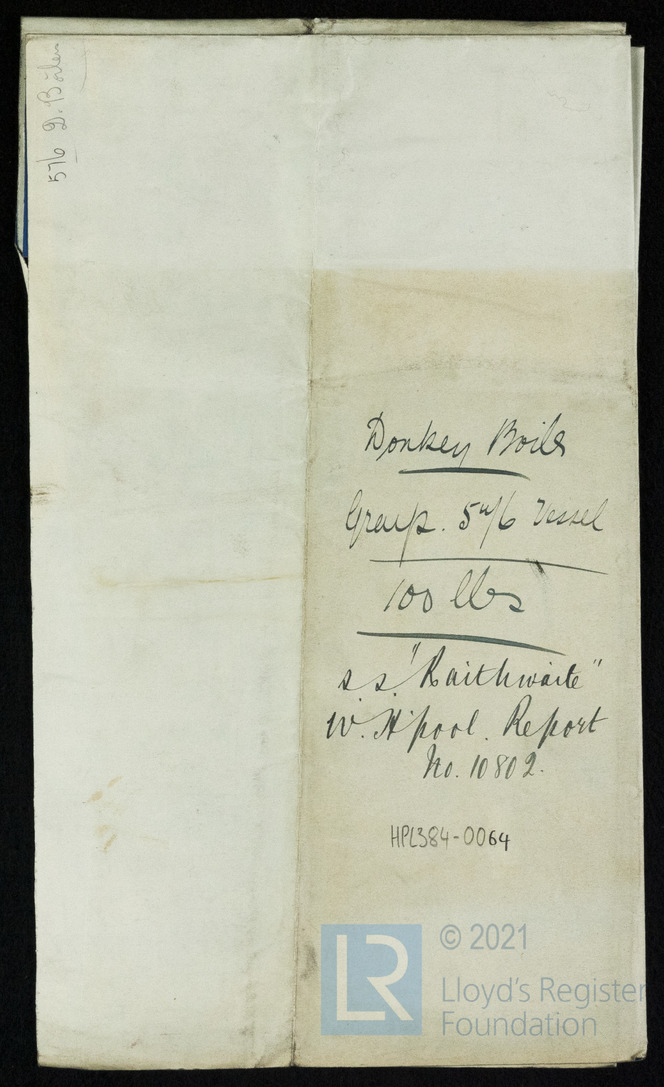 576 D. Boiler
Donkey Boiler
Group. 5"/6 Vessel
100 lbs
s.s. "Raithwaite"
W. H'pool. Report
No. 10802.
HPL384-0064
LR
© 2021
Lloyd's Register
Foundation